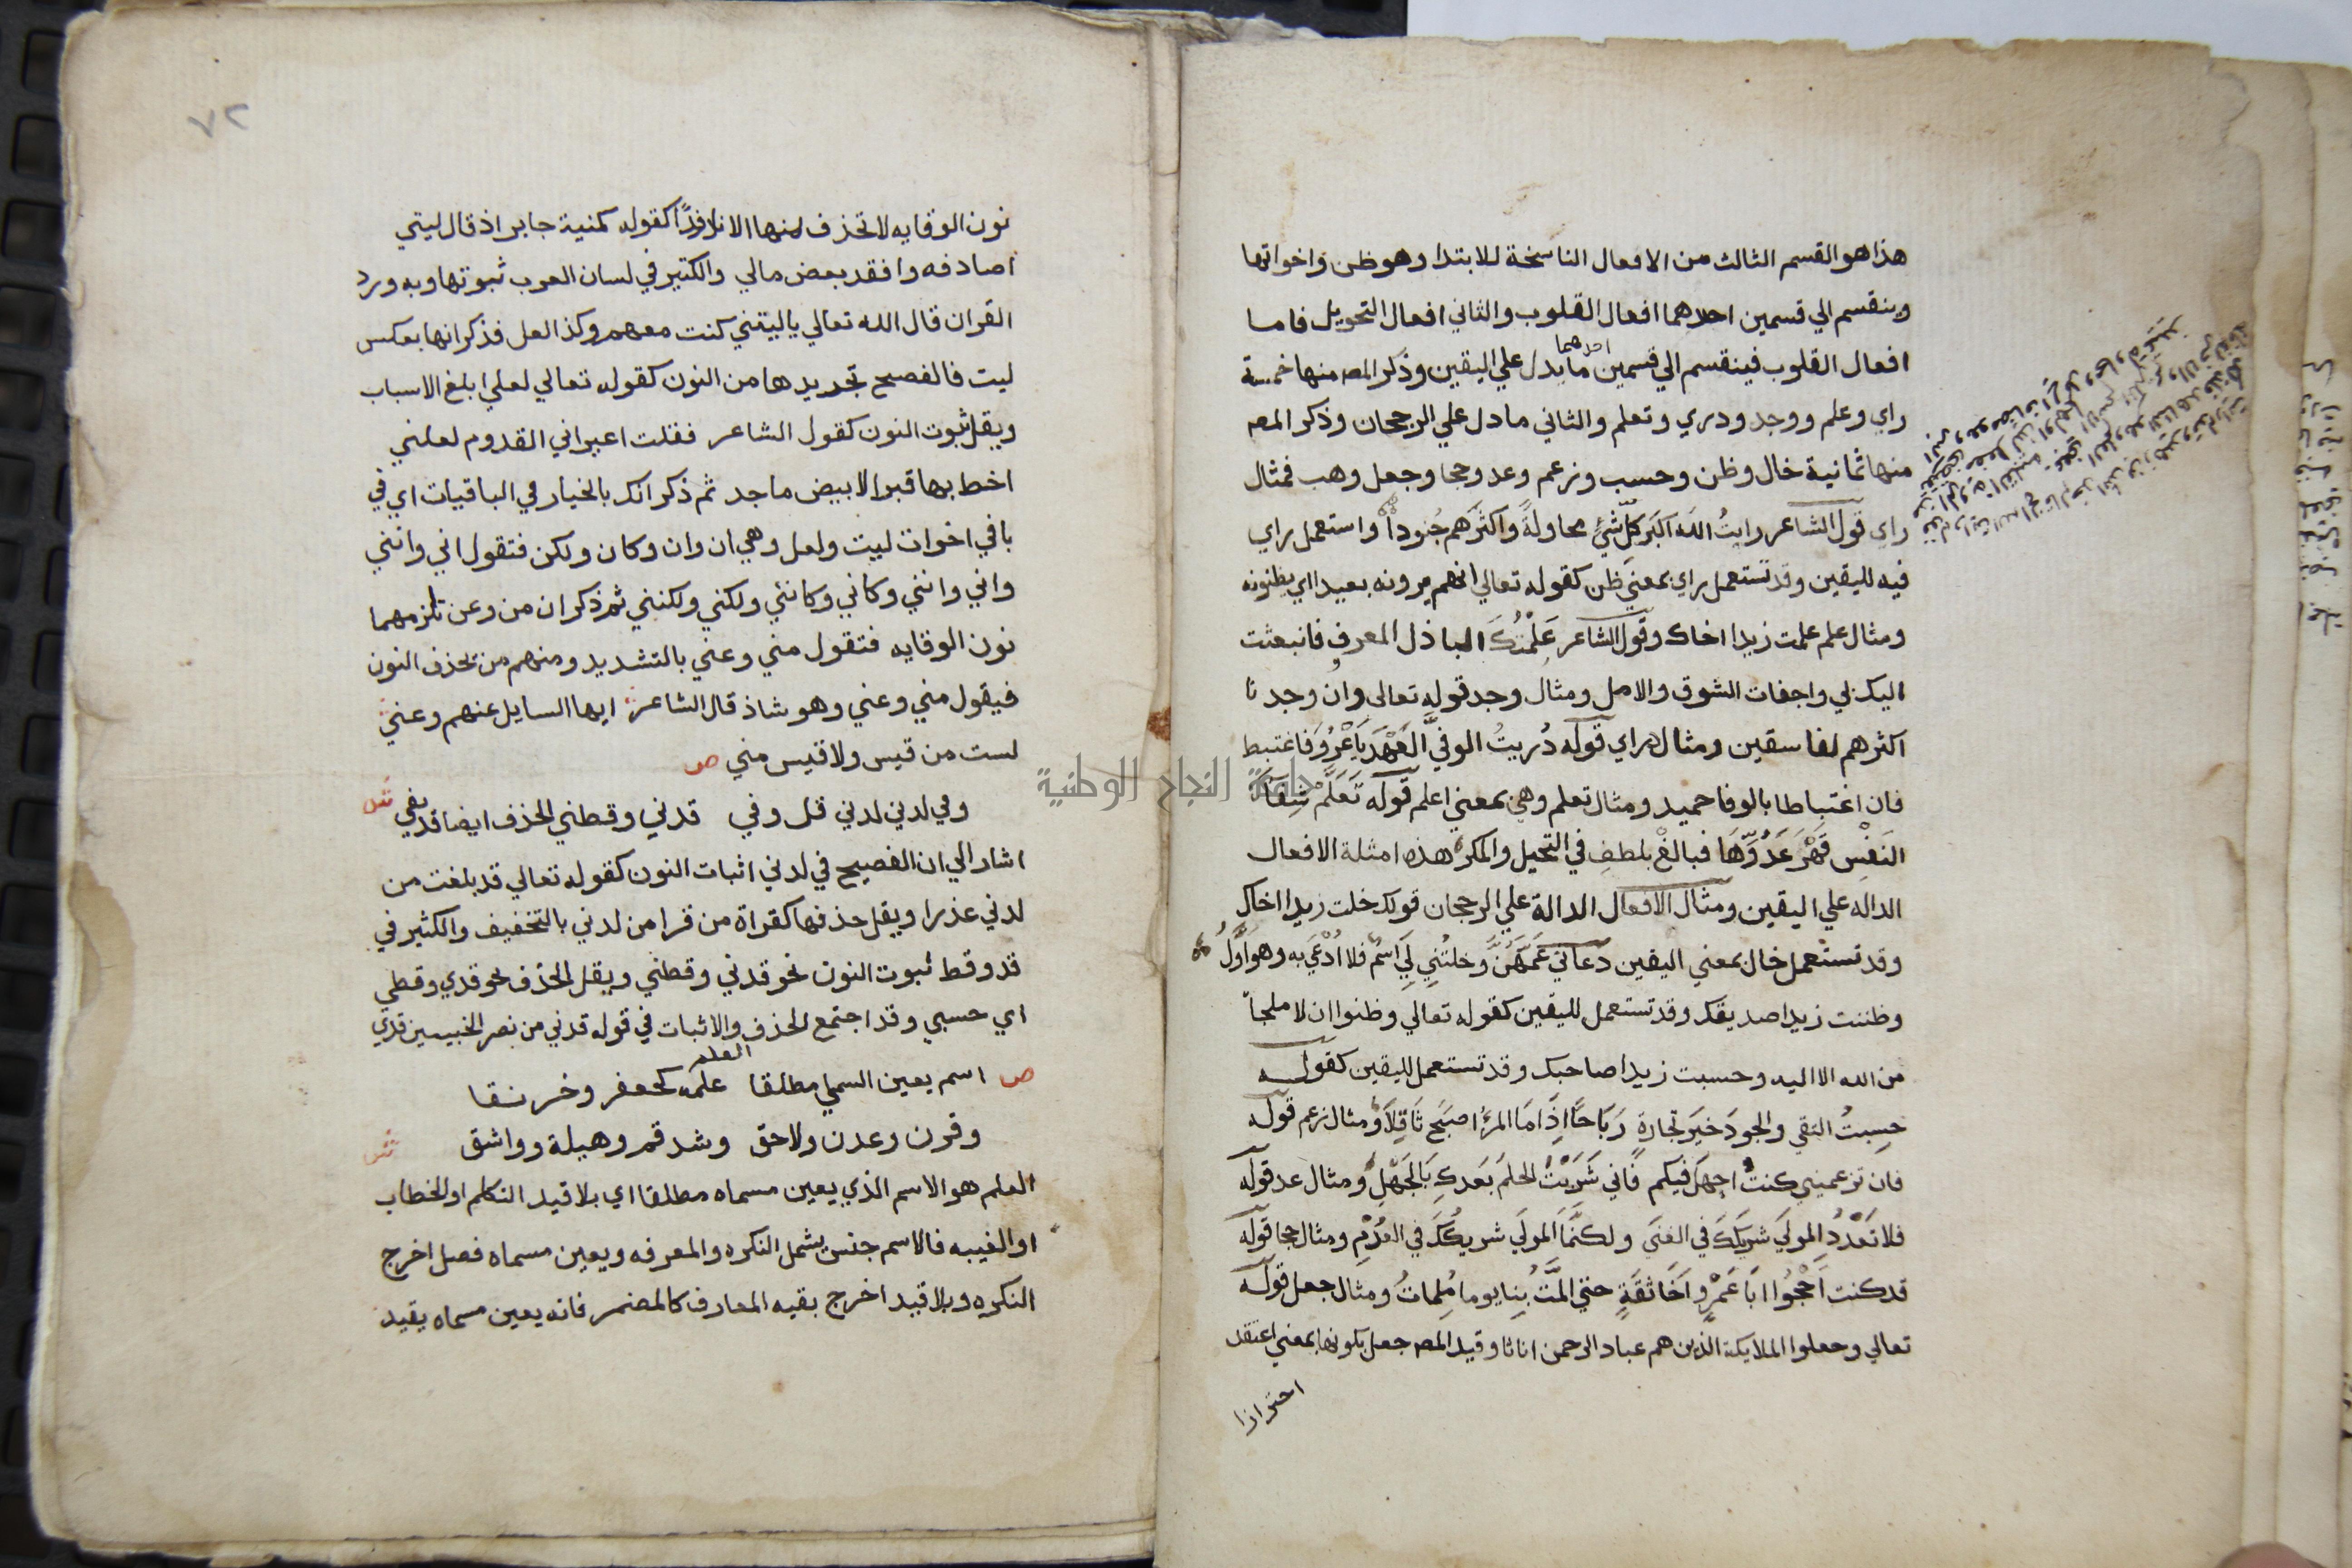 هذا هو القسم الثالث من الافعال الناسخة للابتدا وهو ظن واخواتها
وينقسم الي قسمين احدهما افعال القلوب والثاني افعال التحويل فاما
افعال القلوب فينقسم الي قسمين احدهما ما يدل علي اليقين وذكر المصه منها خمسة
راي وعلم ووجد ودري وتعلم والثاني ما دل علي الرجحان وذكر المصه
منها ثمانية خال وظن وحسب وزعم وعد وحجا وجعل وهب فمثال
راي قول الشاعر رايتُ اللَه اكبَر كلِّ شيْءٍ محاولةً واكثَرهم جُنوداً واستعمل راي
فيه لليقين وقد تستعمل راي بمعنيَ ظن كقوله تعالي انهم يرونه بعيدا اي يظنونه
ومثال علم علمت زيدا اخاك وقول الشاعر عَلمْتُكَ الباذل المعروفِ فانبعثت
اليك بي واجفات الشوق والامل ومثال وجد قوله تعالى وان وجدنا
اكثرهم لفاسقين ومثال دراي قوله دُريتُ الوفيَّ العَهْدَ يَا عُرْوَ فاغتبط
فان اغتباطا بالوفا حميد ومثال تعلم وهي بمعني اعلم قوله تَعَلَّمْ شِفَاَ
النَفْسِ قَهْرَ عَدُوِّهَا فبالغْ بلطفٍ في التحيل والمكر هذه امثلة الافعال
الداله علي اليقين ومثال الافعال الدالة علي الرجحان قولك خلت زيدا اخاك
وقد تستعمل خال بمعني اليقين دعاني عَمَّهُنَّ وخلتُني لِيَ اسمٌ فلا اُدْعَي به وهو اَوَّلُ
وظننت زيدا صديقك وقد تستعمل لليقين كقوله تعالي وظنوا ان لا ملجأ
من الله الا اليه وحسبت زيدا صاحبك وقد تستعمل لليقين كقوله
حسِبتُ التقي والجودَ خيَر تجارةٍ رَبَاحًا اذَا مَا المرُ اصبَح ثَاقِلاَ ومثال زعم قوله
فان تزعميني كنتُ اجهل فيكم فاني شَرَيْتُ الحلمَ بَعَدكِ بَالجَهْلِ ومثال عد قوله
فلا تَعْدُدِ المولَي شريكَكَ في الغنَي ولكنَّمَا المولَي شريكُكَ في العُدْمِ ومثال حجا قوله
قد كنت اَحْجُوا ابَا عَمْرٍو اَخَا ثقَةٍ حتي المَّتْ بِنا يوما مُلِماتُ ومثال جعل قوله
تعالي وجعلوا الملايكة الذين هم عباد الرحمن اناثا وقيد المصه جعل بكونها بمعني اعتقد
احترازا
٧٢
نون الوقايه لا تحذف منها الا نادرًا كقوله كمنية جابر اذ قال ليتي
اصادفه وافقد بعض مالي والكثير في لسان العرب ثبوتها وبه ورد
القران قال الله تعالي يا ليتني كنت معهم وكذا لعل فذكر انها بعكس
ليت فالفصيح تجريدها من النون كقوله تعالي لعلي ابلغ الاسباب
ويقل ثبوت النون كقول الشاعر فقلت اعيراني القدوم لعلني
اخط بها قبرا لابيض ماجد ثم ذكر انك بالخيار في الباقيات اي في
باقي اخوات ليت ولعل وهي ان وان وكان ولكن فتقول اني وانني
واني وانني وكاني وكانني ولكني ولكنني ثم ذكر ان من وعن تلزمهما
نون الوقايه فتقول مني وعني بالتشديد ومنهم من يحذف النون
فيقول مني وعني وهو شاذ قال الشاعر ايها السايل عنهم وعني
لست من قيس ولا قيس مني ص
وفي لدني لدني قل وفي قدني وقطني الحذف ايضا قد يفي ش
اشار الي ان الفصيح في لدني اثبات النون كقوله تعالي قد بلغت من
لدني عذرا ويقل حذفها كقراة من قرا من لدني بالتخفيف والكثير في
قد وقط ثبوت النون نحو قدني وقطني ويقل الحذف نحو قدي وقطي
اي حسبي وقد اجتمع الحذف والاثبات في قوله قدني من نصر الخبيبين قدي
العلم
ص اسم يعين المسمي مطلقا علمه كجعفر وخرنقا
وقرن وعدن ولاحق وشدقم وهيلة وواشق ش
العلم هو الاسم الذي يعين مسماه مطلقا اي بلا قيد التكلم او الخطاب
او الغيبه فالاسم جنس يشمل النكره والمعرفه ويعين مسماه فصل اخرج
النكره وبلا قيد اخرج بقيه المعارف كالمضمر فانه يعين مسماه بقيد
جامعة النجاح الوطنية